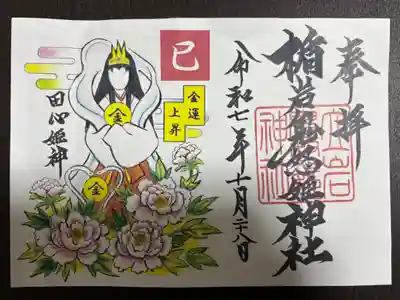 奉拝
楯岩鬼怒姫神社
令和七年十月二八日
巳
金運
上昇
田心姫神
金
金